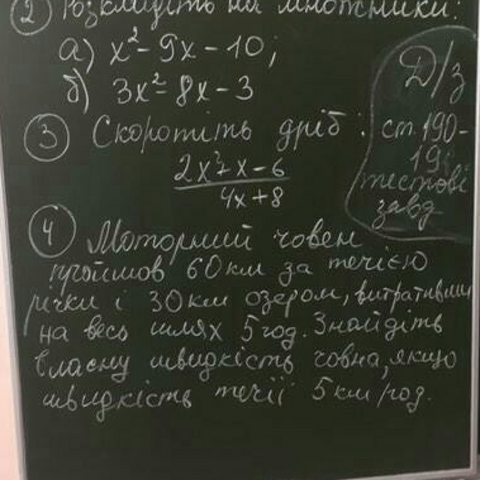 ② Розкладіть на множники:
а) x² - 9x - 10;
б) 3x² - 8x - 3
Д/з
③ Скоротіть дріб:
ст. 190-
тестові
завд
2x² + x - 6
4x + 8
④ Моторний човен
пройшов 60 км за течією
річки і 30 км озером, витративши
на весь шлях 5 год. Знайдіть
власну швидкість човна, якщо
швидкість течії 5 км/год.